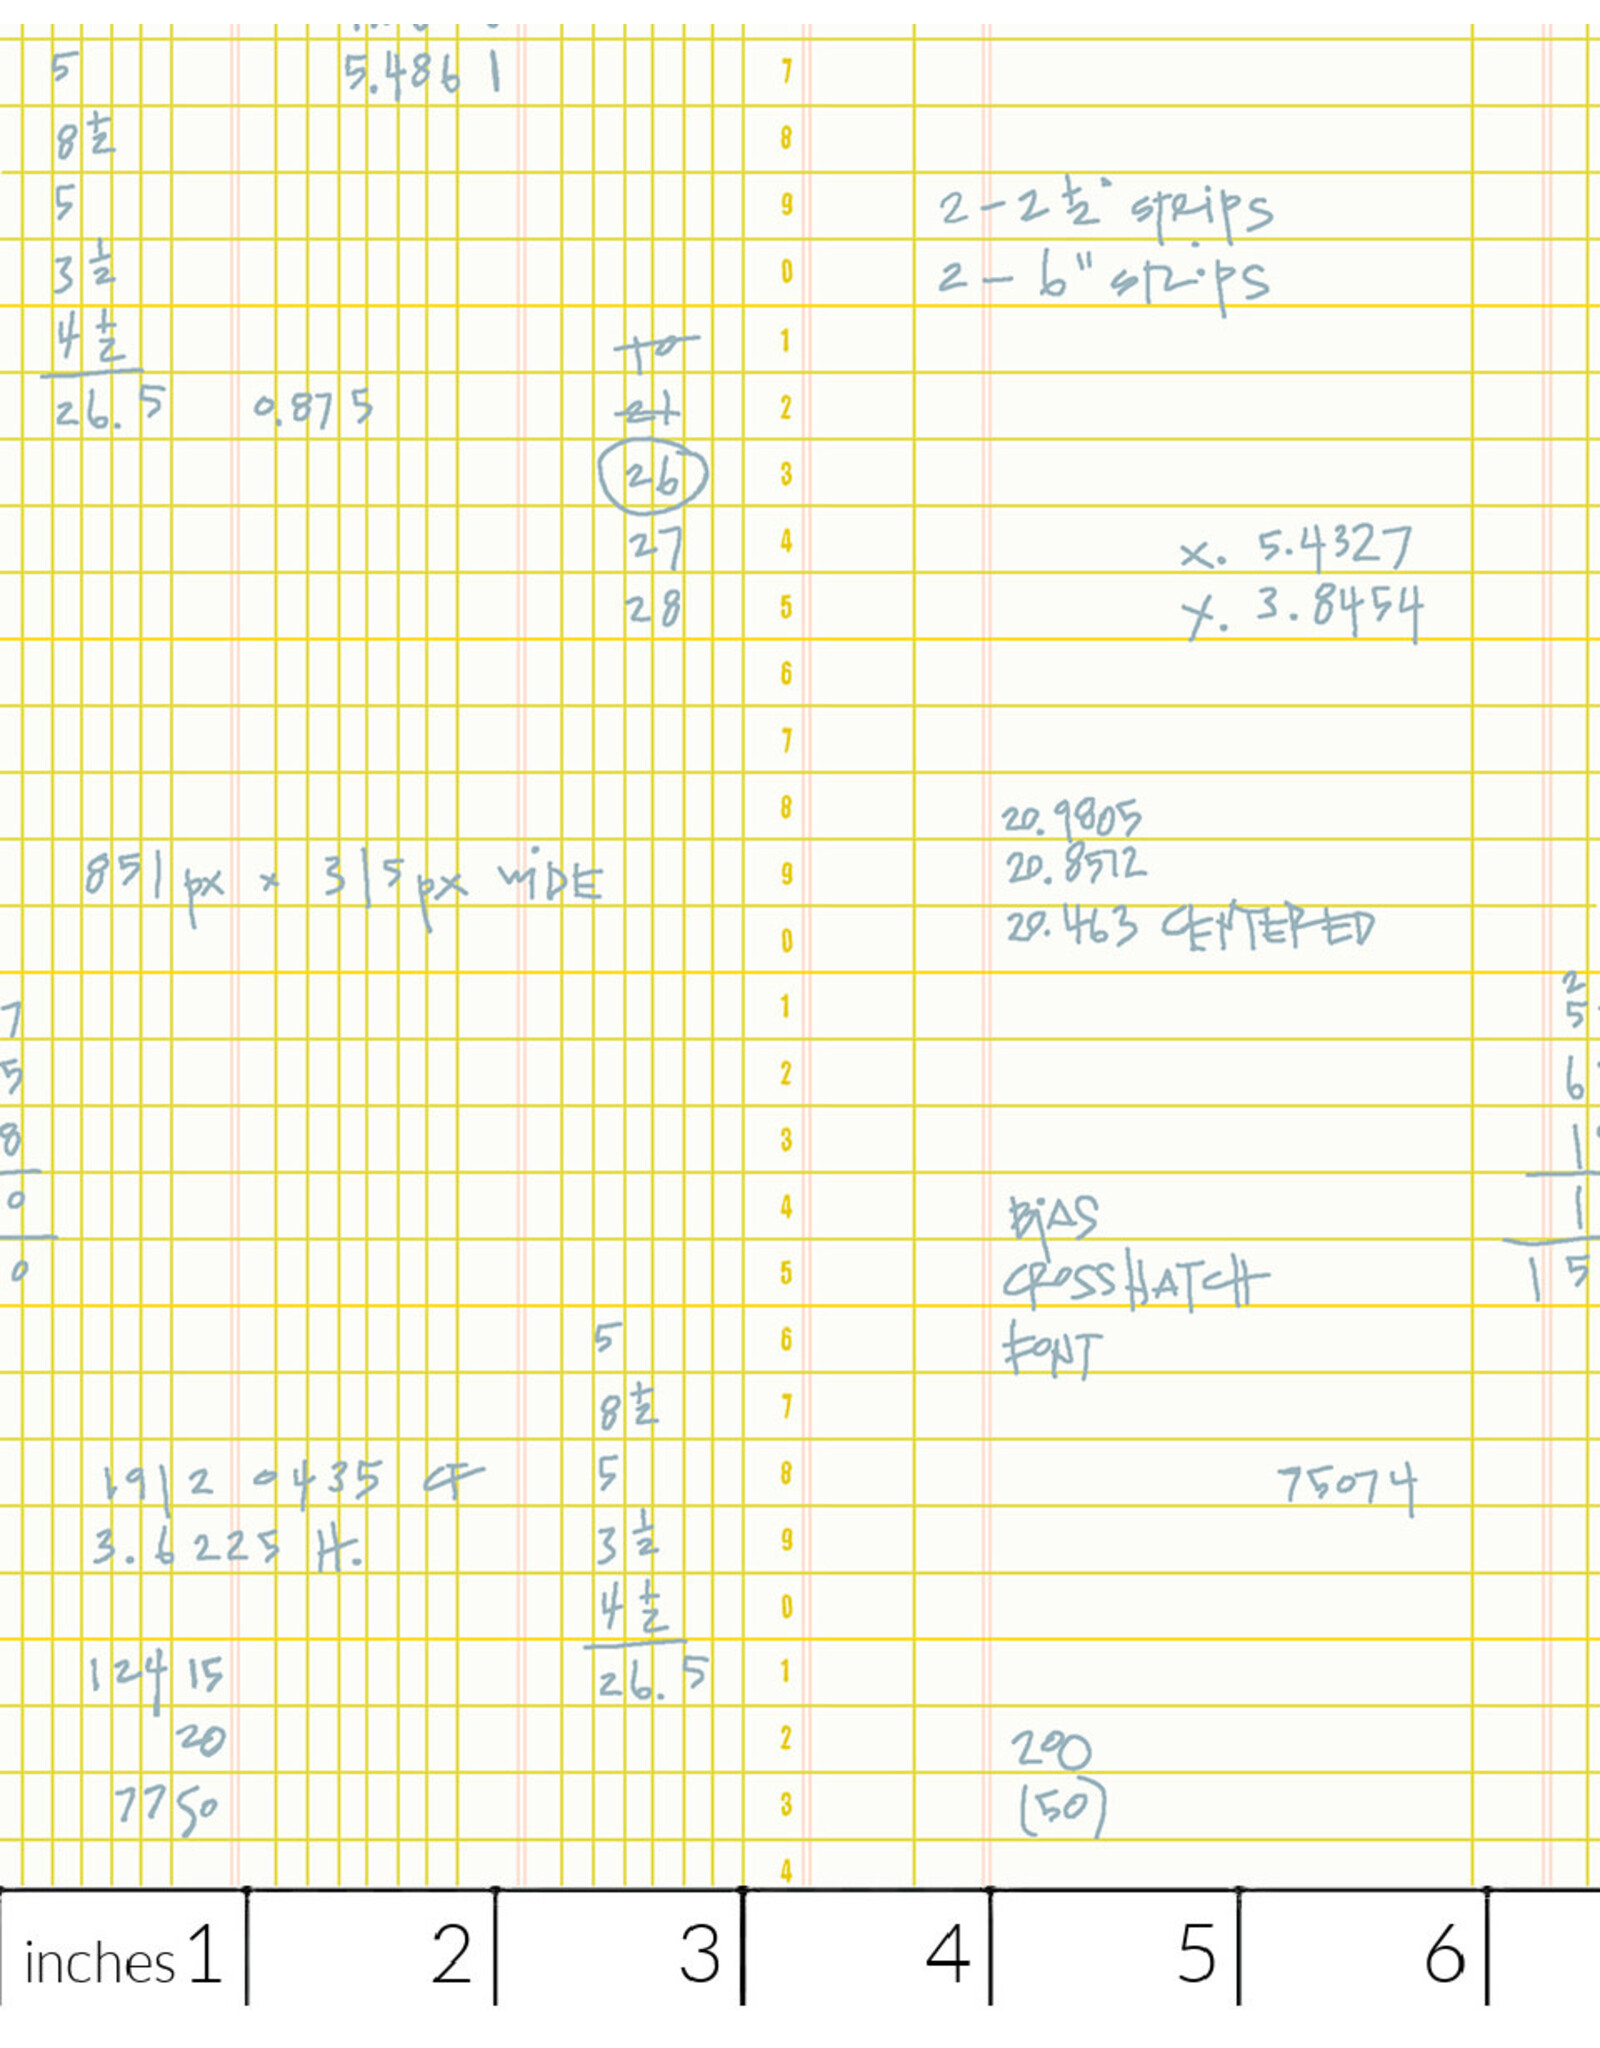 5
8 1/2
5
3 1/2
4 1/2
26.5
5.4861
0.875
10
21
26
27
28
851 px x 315 px WiDE
7
5
8
0
0
1912 0435 CT
3.6225 H.
12415
20
7750
5
8 1/2
5
3 1/2
4 1/2
26.5
7
8
9
0
1
2
3
4
5
6
7
8
9
0
1
2
3
4
5
6
7
8
9
0
1
2
3
4
2 - 2 1/2" strips
2 - 6" strips
x. 5.4327
y. 3.8454
20.9805
20.8572
20.463 CENTERED
BiAS
CROSSHATCH
FONT
75074
200
(50)
2
5
6
1
1
15
inches 1 2 3 4 5 6